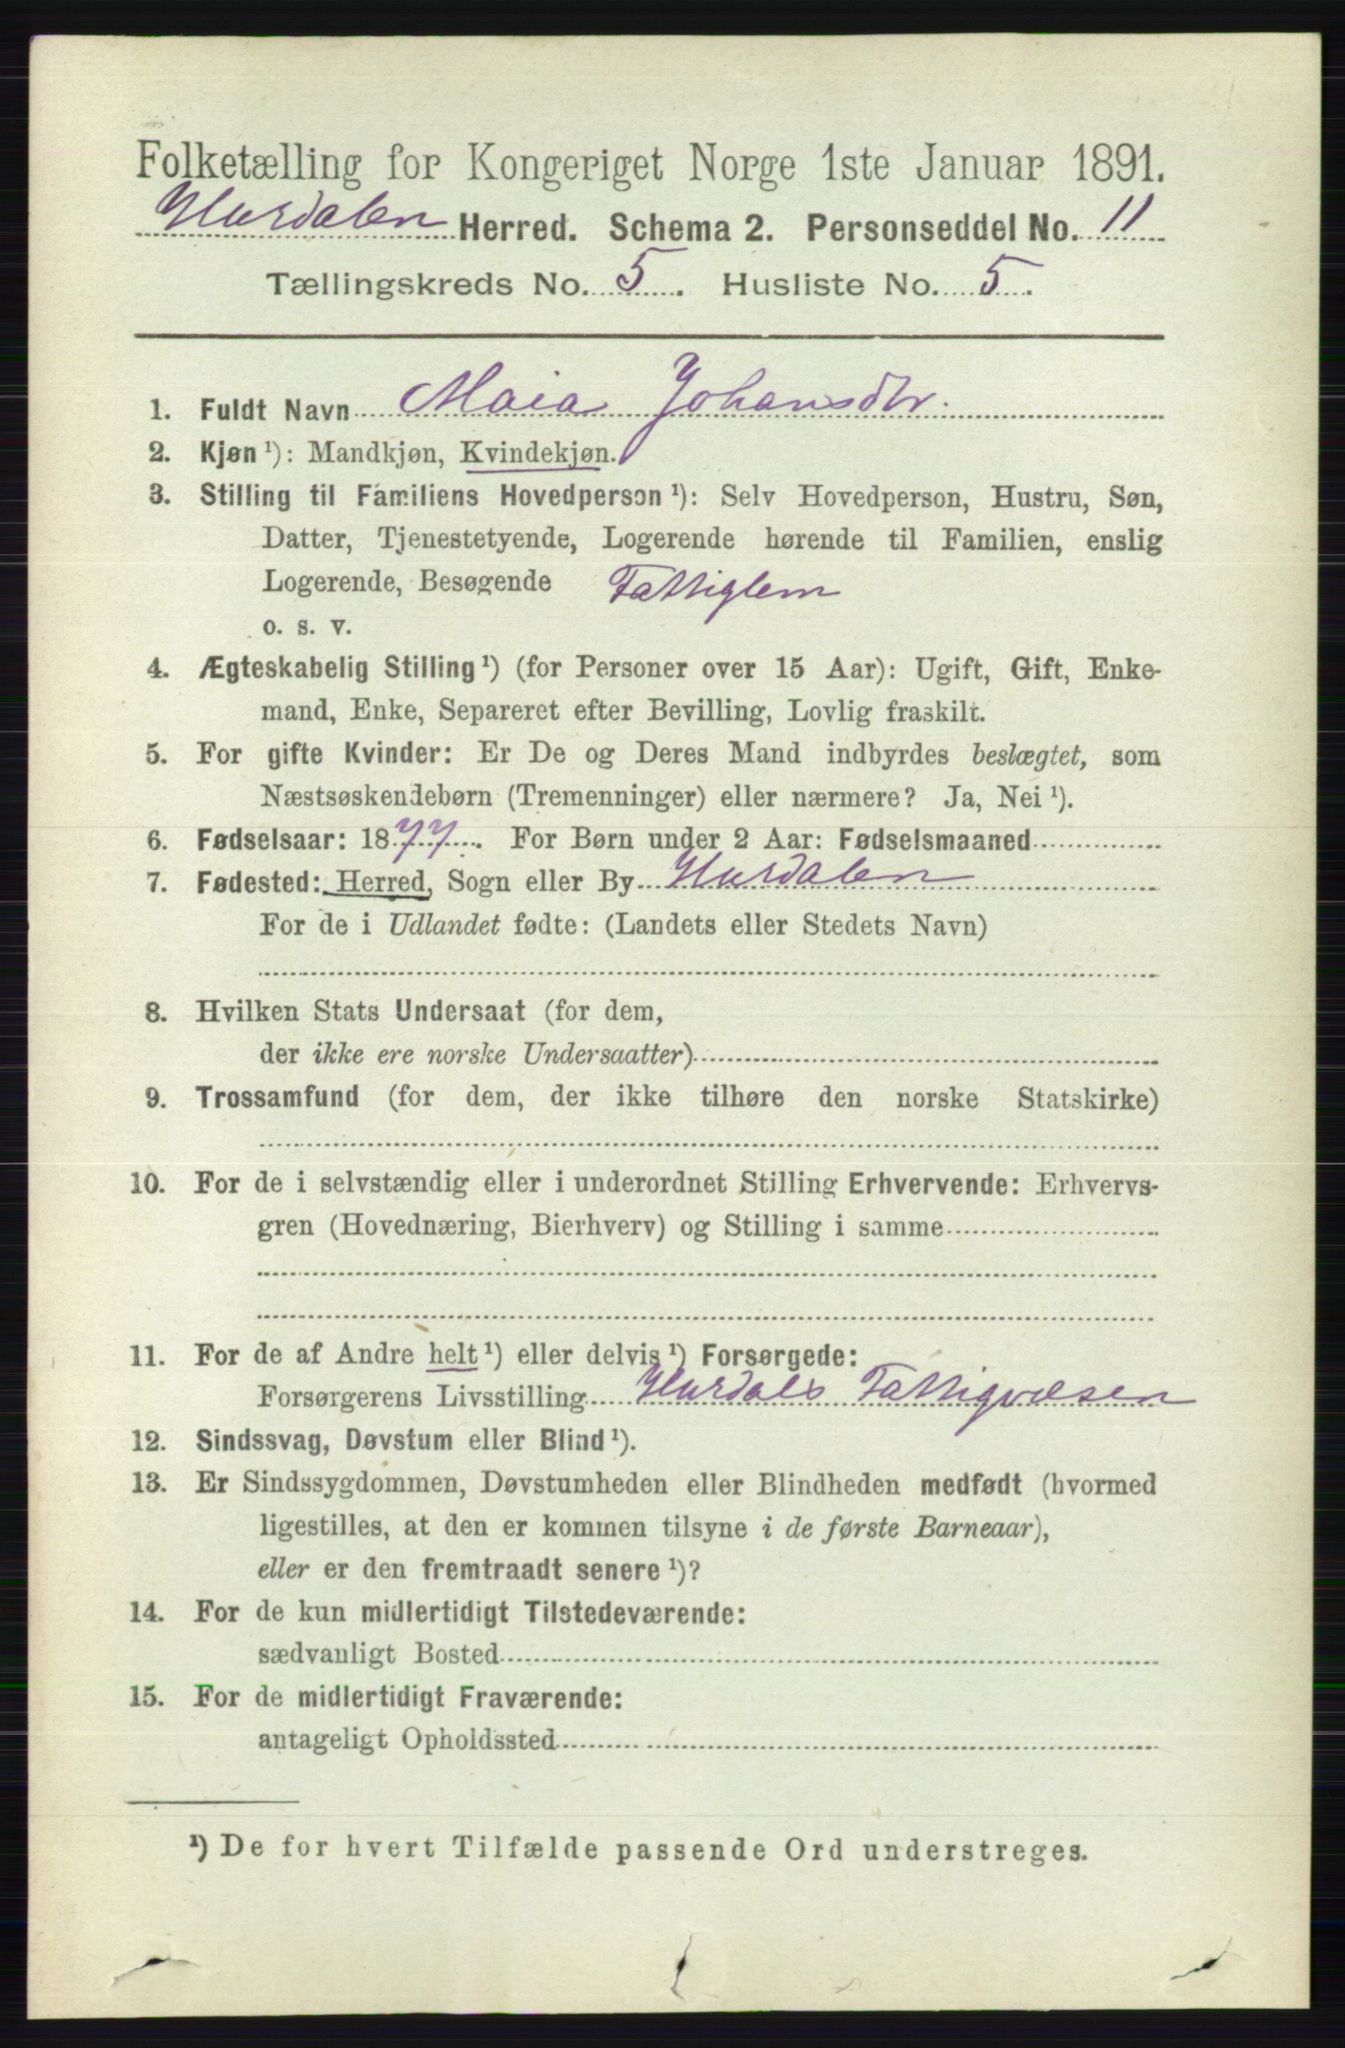 Folketælling for Kongeriget Norge 1ste Januar 1891.
Hurdalen Herred. Schema 2. Personseddel No. 11
Tællingskreds No. 5. Husliste No. 5.
1. Fuldt Navn Maia Johansdtr.
2. Kjøn ¹): Mandkjøn, Kvindekjøn.
3. Stilling til Familiens Hovedperson ¹): Selv Hovedperson, Hustru, Søn,
Datter, Tjenestetyende, Logerende hørende til Familien, enslig
Logerende, Besøgende Fattiglem
o. s. v.
4. Ægteskabelig Stilling ¹) (for Personer over 15 Aar): Ugift, Gift, Enke-
mand, Enke, Separeret efter Bevilling, Lovlig fraskilt.
5. For gifte Kvinder: Er De og Deres Mand indbyrdes beslægtet, som
Næstsøskendebørn (Tremenninger) eller nærmere? Ja, Nei ¹).
6. Fødselsaar: 1877. For Børn under 2 Aar: Fødselsmaaned
7. Fødested: Herred, Sogn eller By Hurdalen
For de i Udlandet fødte: (Landets eller Stedets Navn)
8. Hvilken Stats Undersaat (for dem,
der ikke ere norske Undersaatter)
9. Trossamfund (for dem, der ikke tilhøre den norske Statskirke)
10. For de i selvstændig eller i underordnet Stilling Erhvervende: Erhvervs-
gren (Hovednæring, Bierhverv) og Stilling i samme
11. For de af Andre helt ¹) eller delvis ¹) Forsørgede:
Forsørgerens Livsstilling Hurdals Fattigvæsen
12. Sindssvag, Døvstum eller Blind ¹).
13. Er Sindssygdommen, Døvstumheden eller Blindheden medfødt (hvormed
ligestilles, at den er kommen tilsyne i de første Barneaar),
eller er den fremtraadt senere ¹)?
14. For de kun midlertidigt Tilstedeværende:
sædvanligt Bosted
15. For de midlertidigt Fraværende:
antageligt Opholdssted
¹) De for hvert Tilfælde passende Ord understreges.